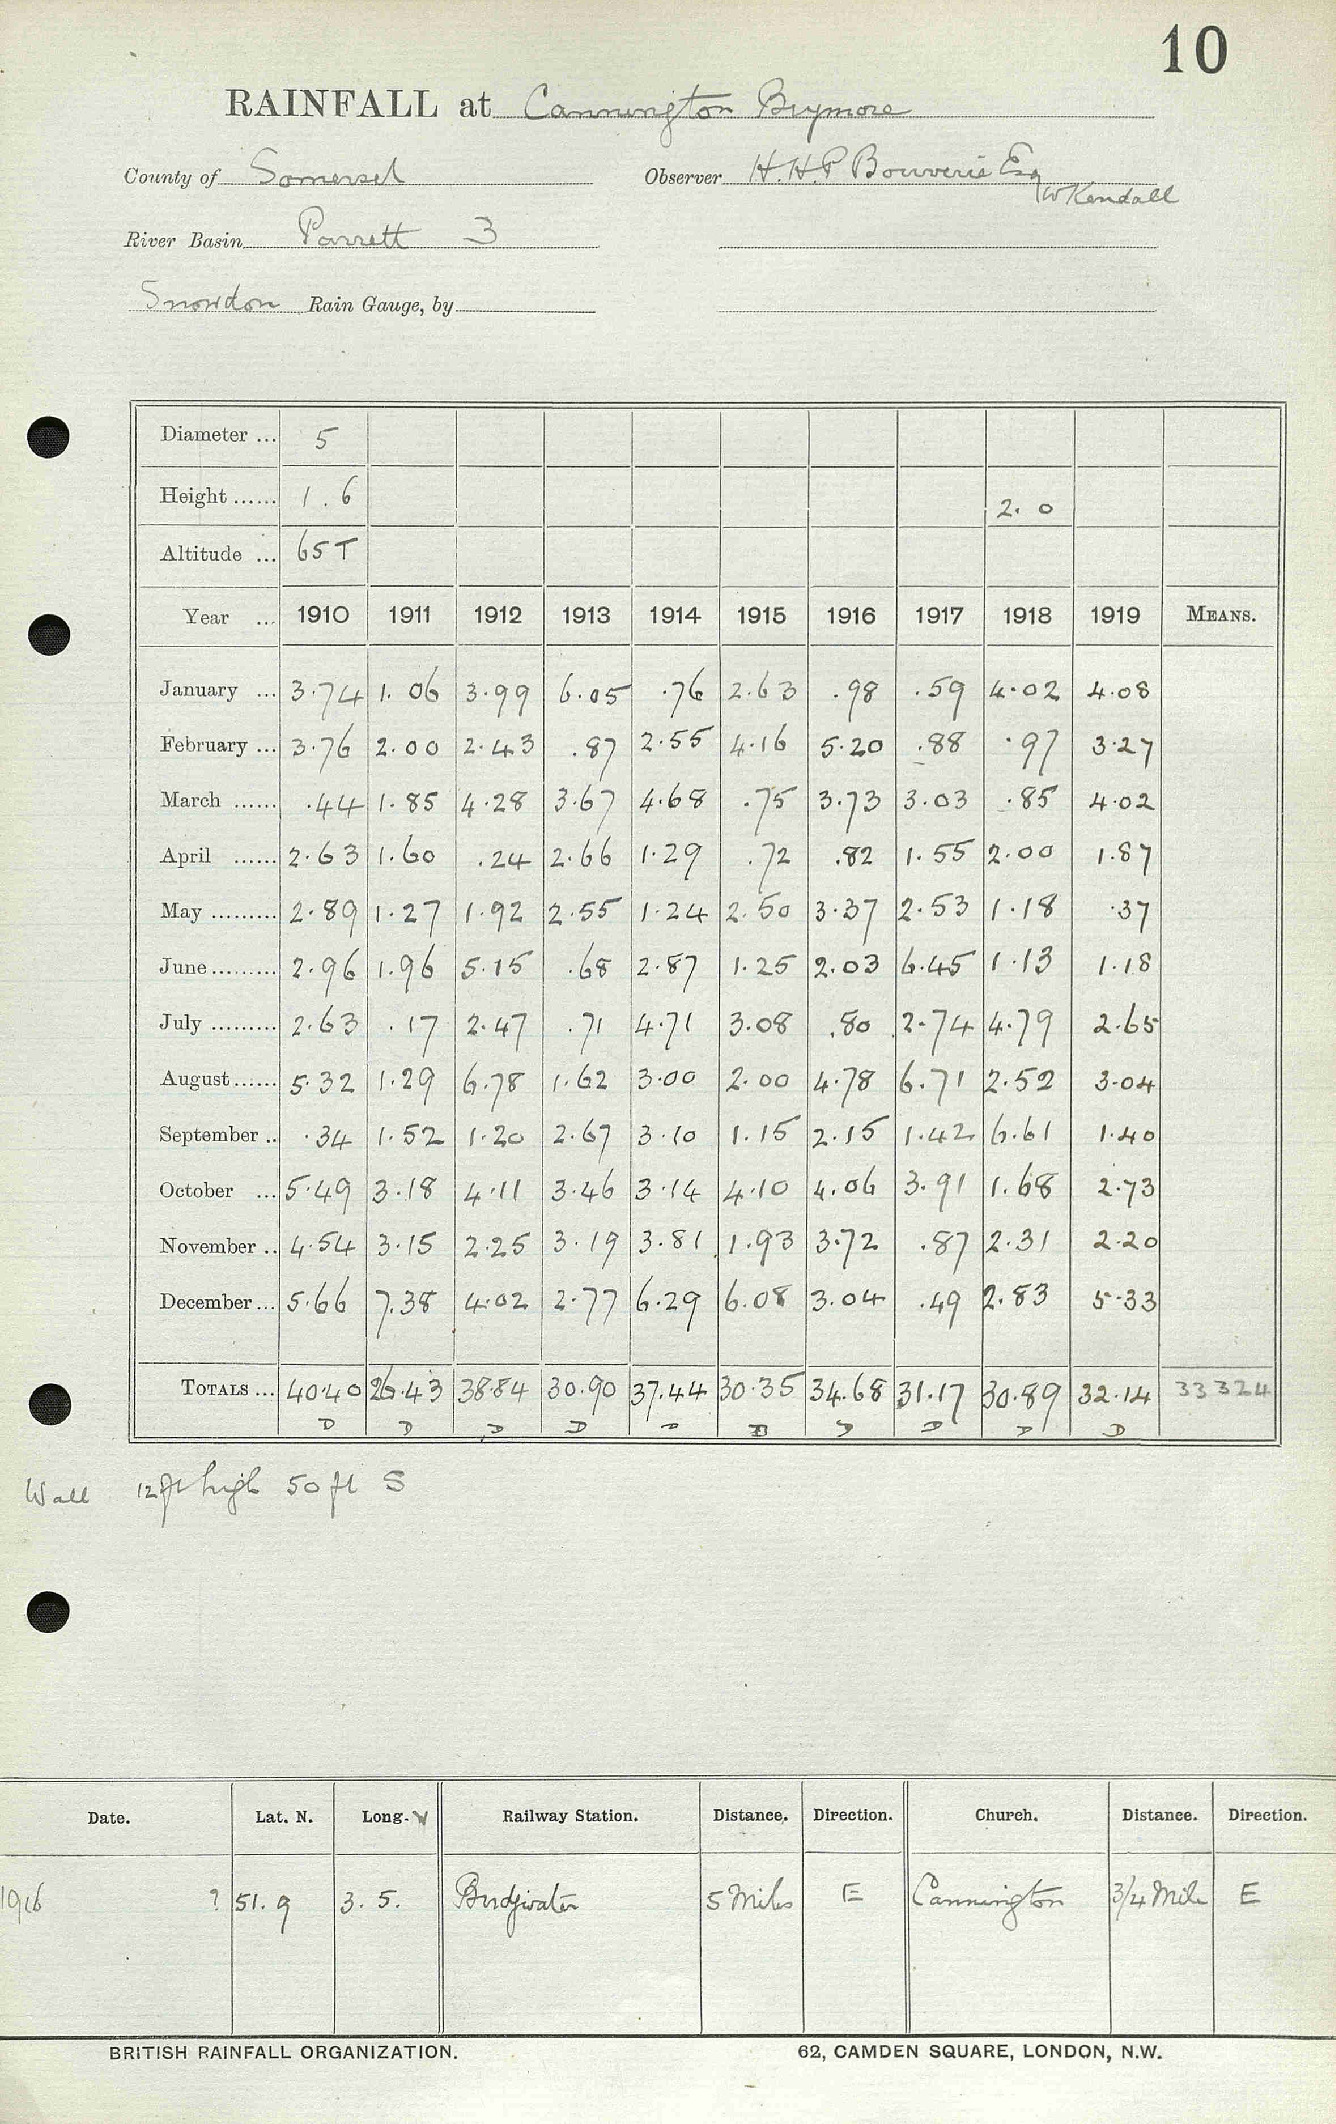 10
RAINFALL at Cannington Brymore
County of Somerset Observer H.H.P Bouverie Esq
W Kendall
River Basin Parrett 3
Snowdon Rain Gauge, by
Diameter ... 5
Height ...... 1.6 2.0
Altitude ... 65T
Year ... 1910 1911 1912 1913 1914 1915 1916 1917 1918 1919 MEANS.
January ... 3.74 1.06 3.99 6.05 .76 2.63 .98 .59 4.02 4.08
February ... 3.76 2.00 2.43 .87 2.55 4.16 5.20 .88 .97 3.27
March ...... .44 1.85 4.28 3.67 4.68 .75 3.73 3.03 .85 4.02
April ...... 2.63 1.60 .24 2.66 1.29 .72 .82 1.55 2.00 1.87
May ......... 2.89 1.27 1.92 2.55 1.24 2.50 3.37 2.53 1.18 .37
June ......... 2.96 1.96 5.15 .68 2.87 1.25 2.03 6.45 1.13 1.18
July ......... 2.63 .17 2.47 .71 4.71 3.08 .80 2.74 4.79 2.65
August ...... 5.32 1.29 6.78 1.62 3.00 2.00 4.78 6.71 2.52 3.04
September .. .34 1.52 1.20 2.67 3.10 1.15 2.15 1.42 6.61 1.40
October ... 5.49 3.18 4.11 3.46 3.14 4.10 4.06 3.91 1.68 2.73
November .. 4.54 3.15 2.25 3.19 3.81 1.93 3.72 .87 2.31 2.20
December ... 5.66 7.38 4.02 2.77 6.29 6.08 3.04 .49 2.83 5.33
TOTALS ... 40.40 26.43 38.84 30.90 37.44 30.35 34.68 31.17 30.89 32.14 33324
D D D D D D D D D D
Wall 12ft high 50 ft S
Date. Lat. N. Long. W Railway Station. Distance. Direction. Church. Distance. Direction.
1916 ? 51. 9 3. 5. Bridgwater 5 Miles E Cannington 3/4 Mile E
BRITISH RAINFALL ORGANIZATION. 62, CAMDEN SQUARE, LONDON, N.W.